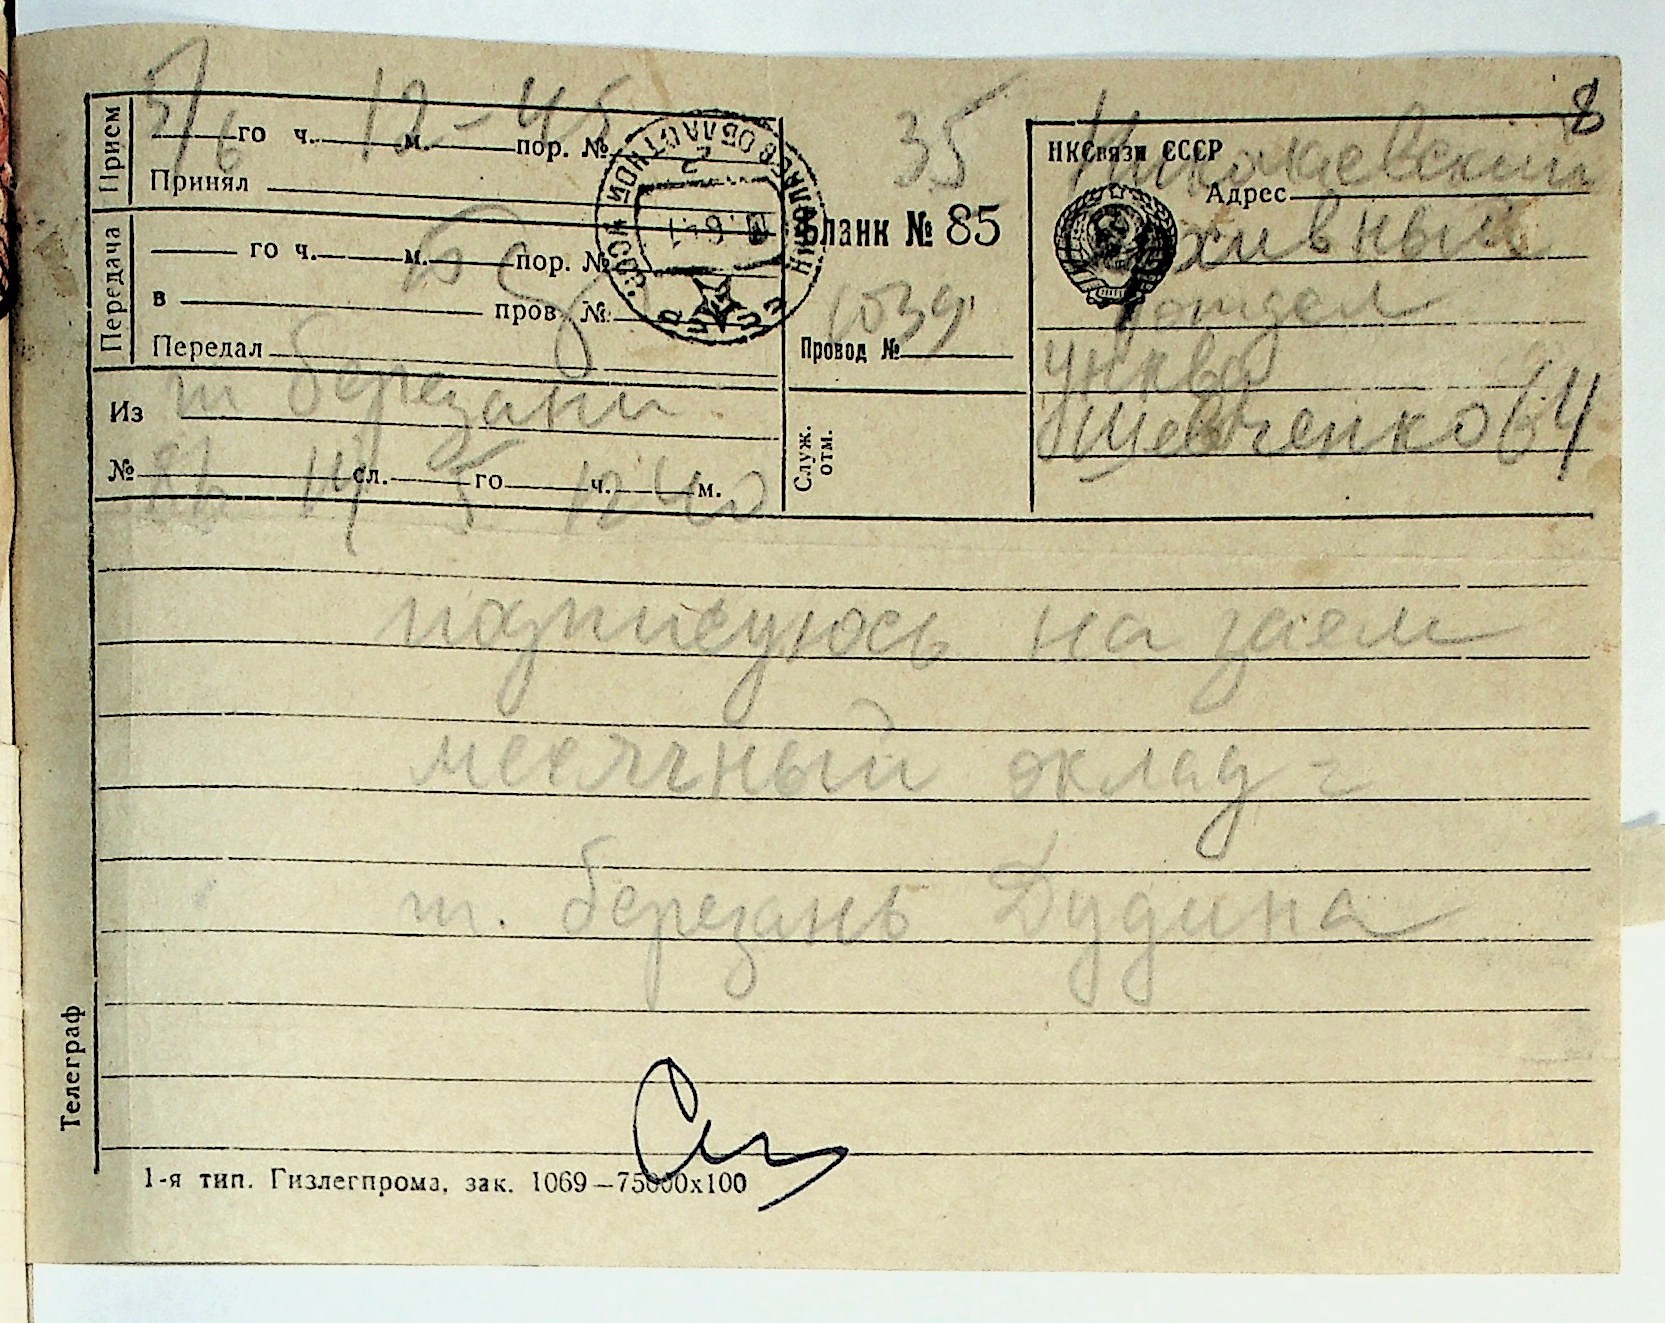 8
5/6 12-45 35
Прием
го ч. м. пор. №
Принял
Передача
го ч. м. пор. №
в пров. №
Передал
Из т березани
№ сл. го ч. м.
14 5 12 40
Бланк № 85
1039
Провод №
Служ. отм.
НКСвязи СССР
Адрес
Николаевский
архивный
отдел
УНКВД
Шевченко 64
подписуюсь на заем
месячный оклад =
т. березань Дудина
Телеграф
1-я тип. Гизлегпрома, зак. 1069—75000х100